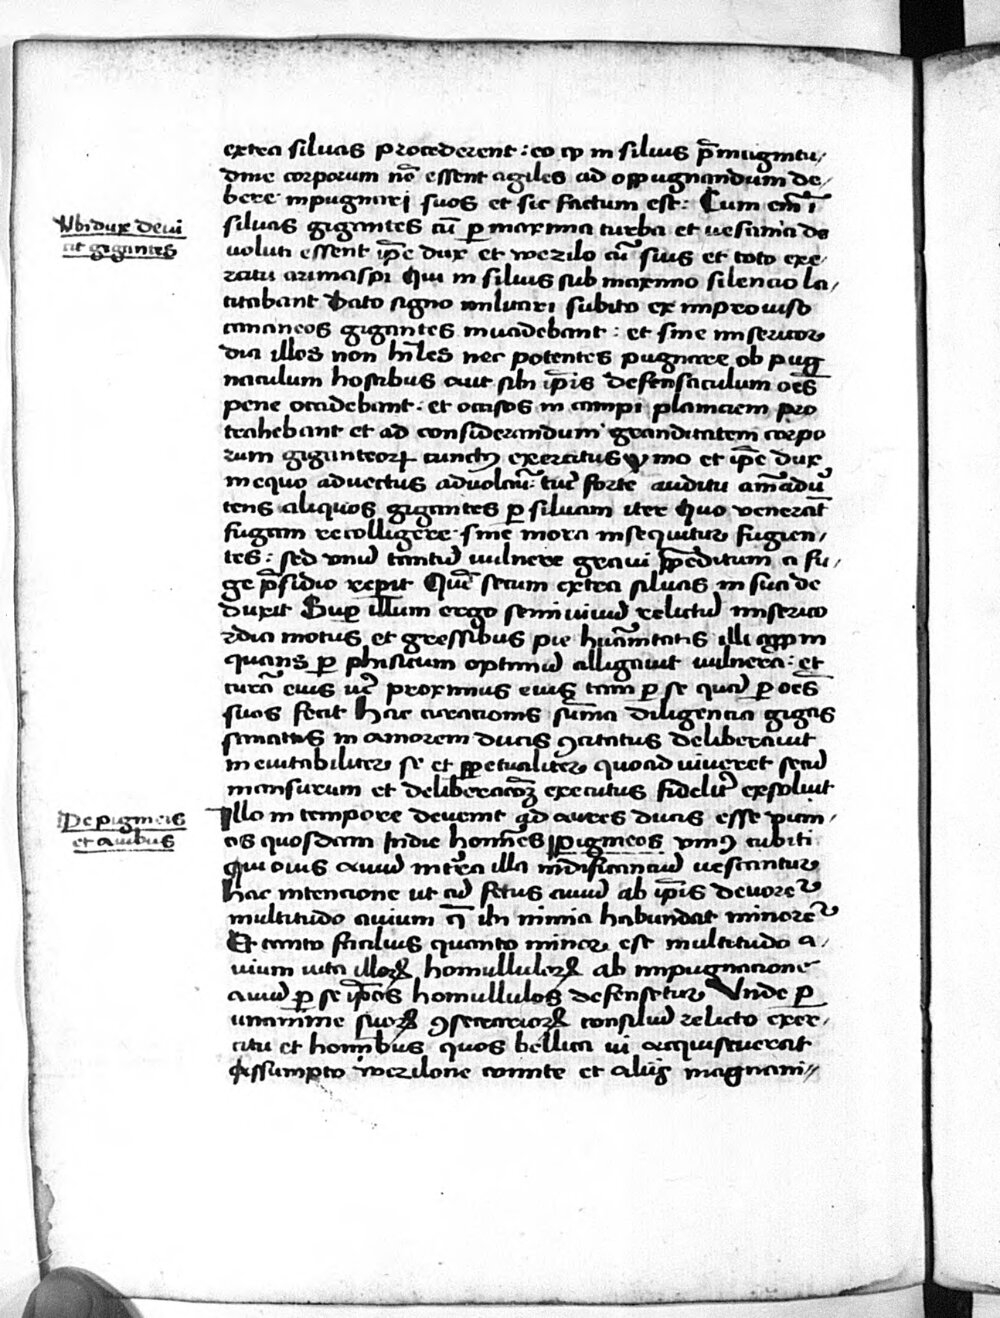 extra siluas procederent : eo ꝙ in siluis p̄ magnitu/
dine corporum nō essent agiles ad oppugnandum de/
bere inpugnari suos et sic factum est : Cum em̄ ī
Ubi dux deui
cit gigantes
siluas gigantes cū p maxima turba et uesania de
uoluti essent ip̄e dux et wezilo cū suis et toto exe/
rcitu arimaspi Qui in siluis sub maximo silencio la/
titabant Dato signo militari subito ex improuiso
cananeos gigantes inuadebant : et sine misericor
dia illos non hn̄les nec potentes pugnare ob pug
naculum hostibus aut sibi ip̄is defensaculum oēs
pene occidebant : et occisos in campi planiciem pro
trahebant et ad considerandum granditatem corpo
rum giganteoꝝ cunctꝰ exercitus ymo et ip̄e dux
in equo aduectus aduolauit tūc forte auditu aīaduer
tens aliquos gigantes p siluam iter Quo venerāt
fugam recolligere sine mora insequitur fugien/
tes : sed vnū tantū uulnere graui p̄peditum a fu/
ge p̄sidio repit Quē secum extra siluas in sua de
duxit Sup illum ergo semiuiuū relictū miserico
rdia motus et gressibus pie hūanitatis illi appin
quans p phisicum optimū alligauit uulnera : et
curā eius ut proximus eius tam p se quā p oēs
suos fecit hac curacionis sūma diligencia gigas
sanatus in amorem ducis ꝯcitatus deliberauit
ineuitabiliter se et ppetualiter quoad uiueret secū
mansurum et deliberacōꝫ executus fidelit exsoluit
De pigmeis
et auibus
Illo in tempore deuenit ad aures ducis esse pum/
os quosdam Indie homīes pigmeos vniꝰ cubiti
qui ouis auiū in tra illa nidificanciū uescuntur
hac intencione ut cū fetus auiū ab ip̄is deuoret
multitudo auium q̄ ibi nimia habundat minoret
Et tanto facilius quanto minor est multitudo a/
uium uita illoꝝ homulluloꝝ ab impugnacione
auiū p se ip̄os homullulos defensetur Unde p
unanime suoꝝ ꝯsecretarioꝝ consiliū relicto exer/
citu et hominibus quos bellica ui acquisiuerat
Assumpto wezilone comite et alijs magnani//